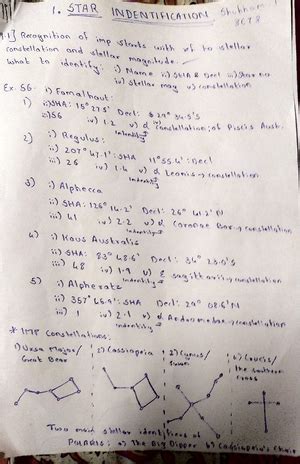 1. STAR INDENTIFICATION
Shubham
8678
Q1] Recognition of imp starts with ref to stellar
constellation and stellar magnitude.
what to identify: i) Name ii) SHA & Decl iii) Star no
iv) stellar mag v) constellation
Ex. 56 i) Famalhaut:
1) ii) SHA: 15° 27.5' Decl: S 29° 34.5'S
iii) 56 iv) 1.2 v) α constellation of Piscis Aust.
identify
2) i) Regulus:
ii) 207° 47.1': SHA 11° 55.4': Decl
iii) 26 iv) 1.4 v) α Leonis → constellation
identify
3) i) Alphecca
ii) SHA: 126° 14.2' Decl: 26° 41.2'N
iii) 41 iv) 2.2 v) α Coronae Bor → constellation
identify
4) i) Kaus Australis
ii) SHA: 83° 48.6' Decl: 34° 23.0'S
iii) 48 iv) 1.9 v) ε sagittarii → constellation
identify
5) i) Alpheratz
ii) 357° 46.9': SHA Decl: 29° 08.6'N
iii) 1 iv) 2.1 v) α Andromedae → constellation
identify
* IMP Constellations:
1) Ursa Major/ Great Bear
2) Cassiopeia
3) Cygnus/ swan
4) Crucis/ the southern cross
Two main stellar identifiers of
POLARIS: a) The Big Dipper b) Cassiopeia's Chair